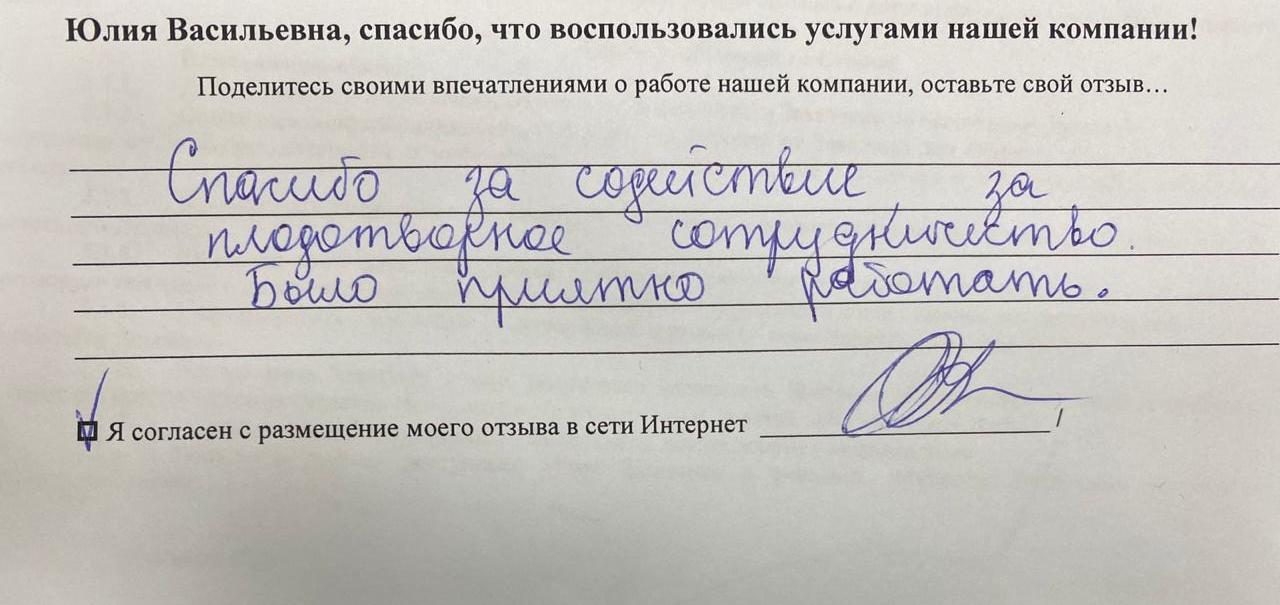 Юлия Васильевна, спасибо, что воспользовались услугами нашей компании!
Поделитесь своими впечатлениями о работе нашей компании, оставьте свой отзыв…
Спасибо за содействие, за
плодотворное сотрудничество.
Было приятно работать.
Я согласен с размещение моего отзыва в сети Интернет /